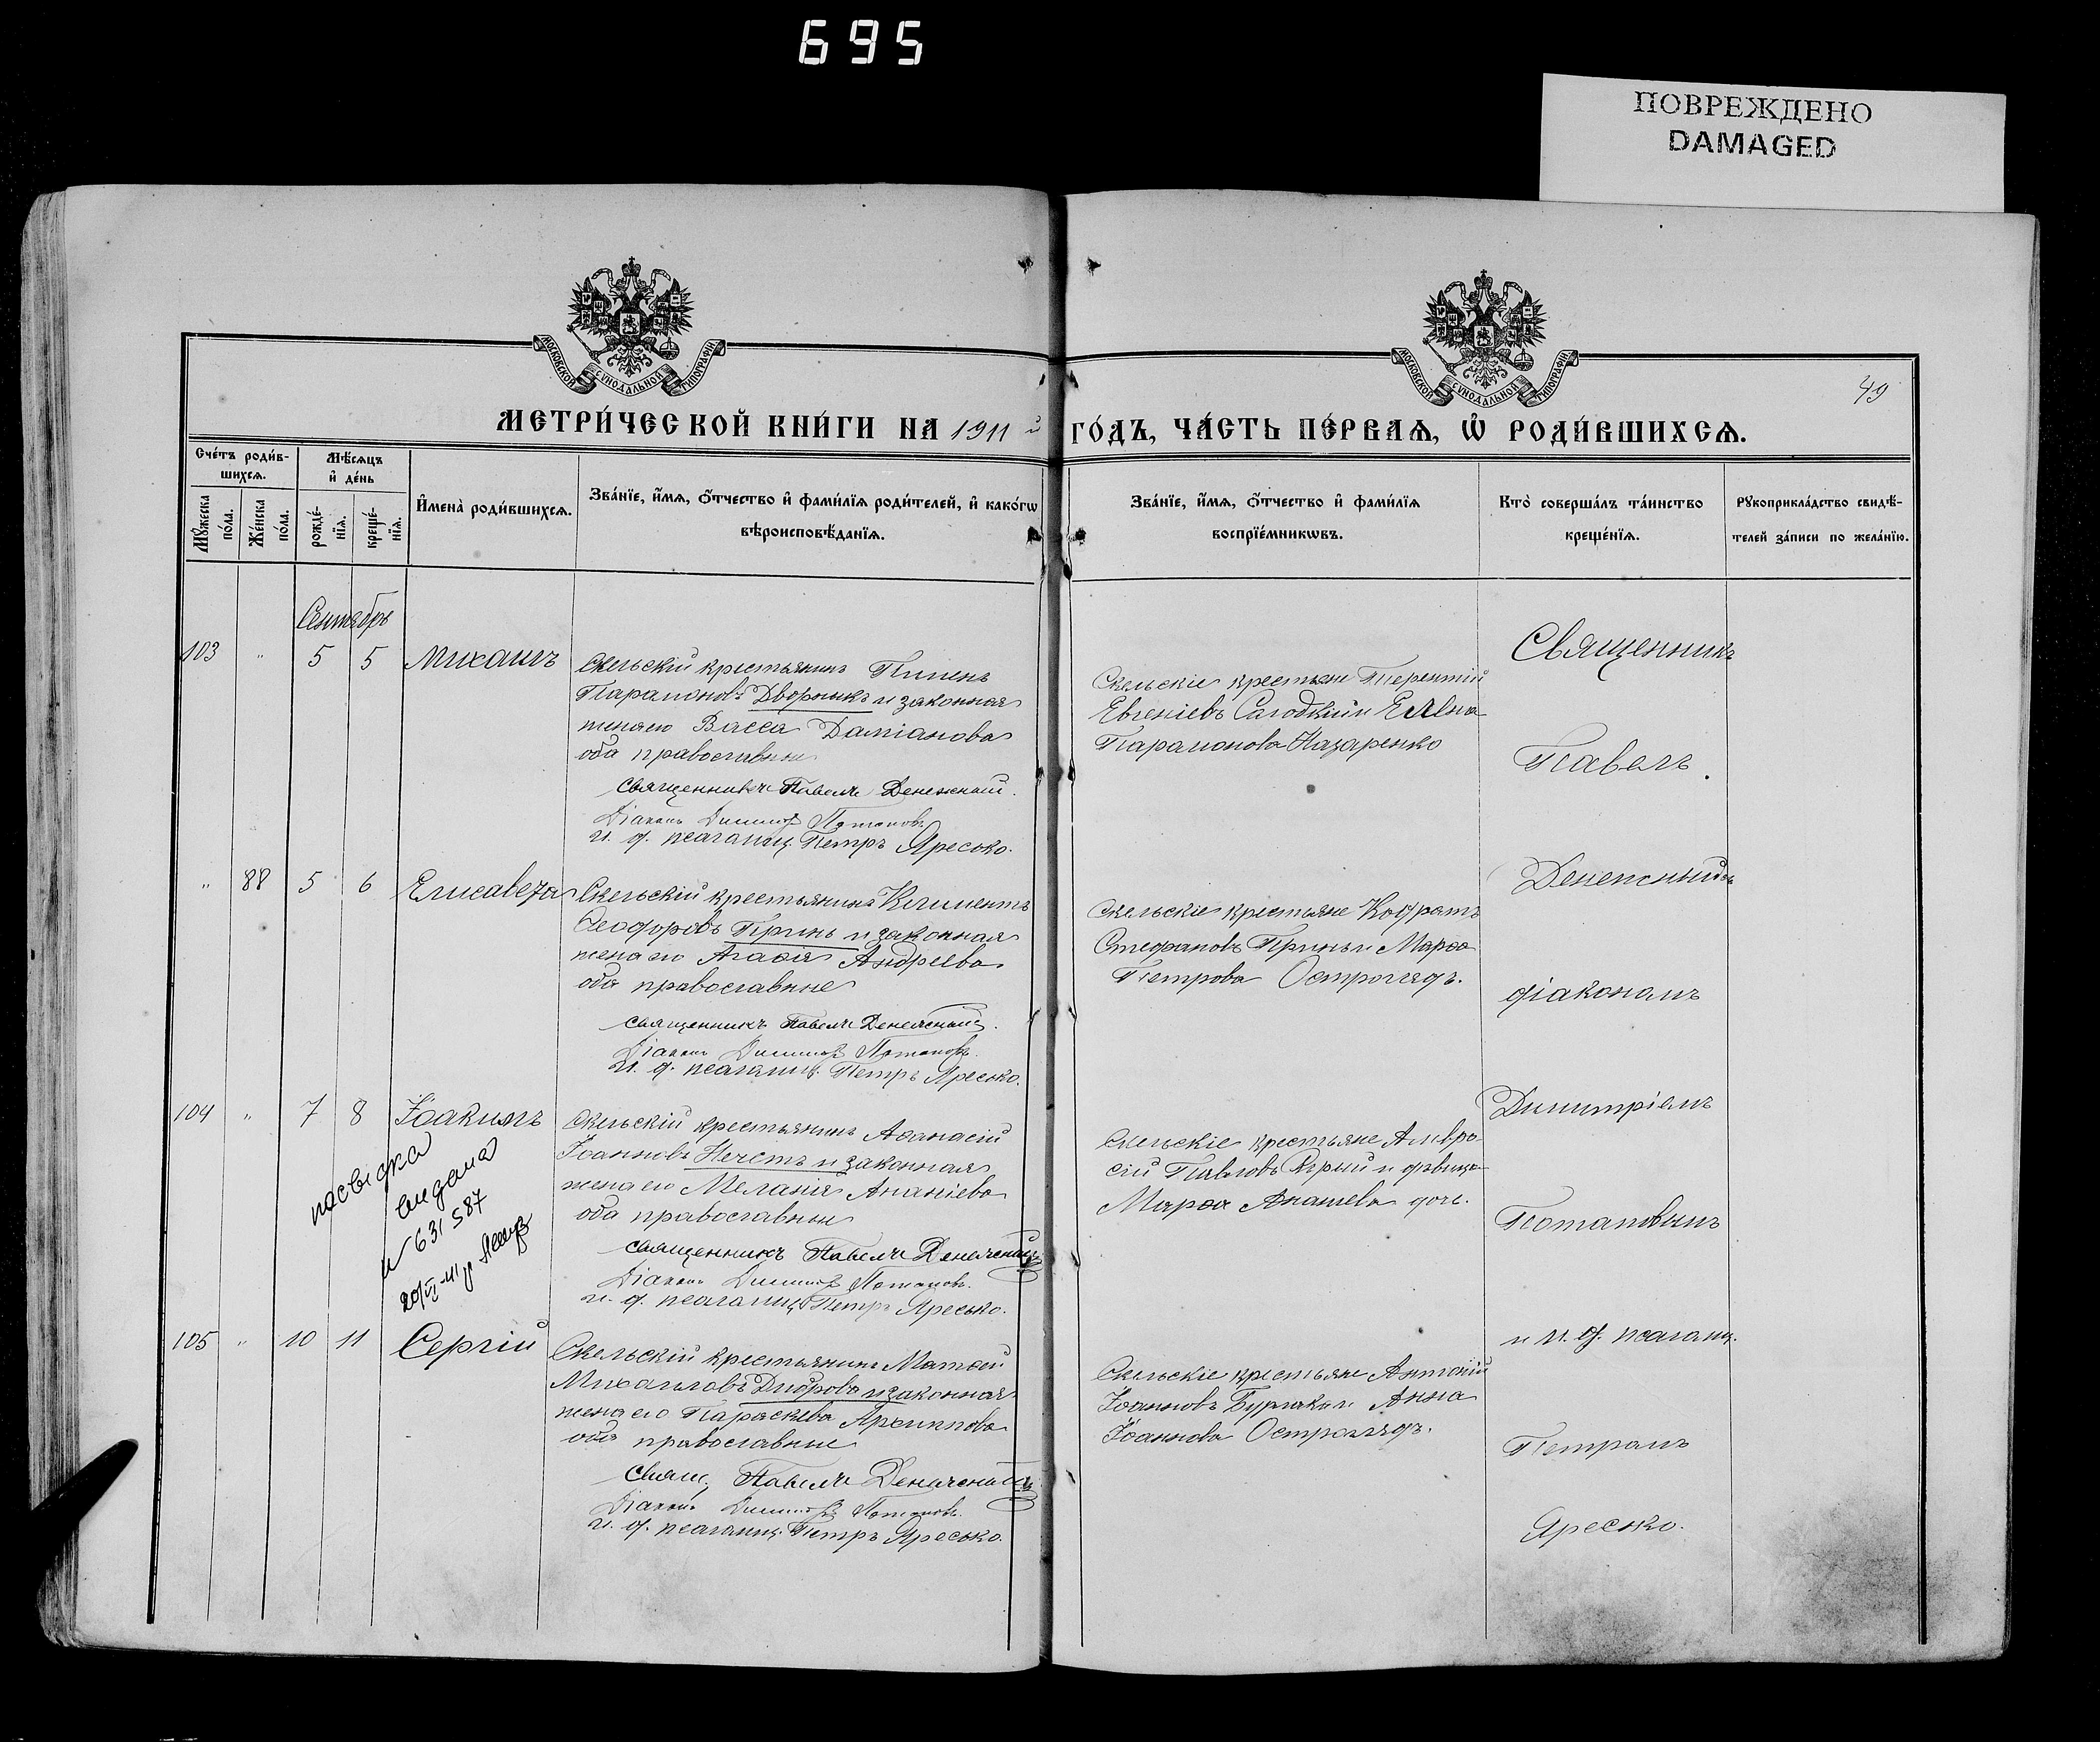 695
ПОВРЕЖДЕНО
DAMAGED
МОСКОВСКОЙ СѴНОДАЛЬНОЙ ТИПОГРАФІИ
МОСКОВСКОЙ СѴНОДАЛЬНОЙ ТИПОГРАФІИ
49
МЕТРИ́ЧЕСКОЙ КНИ́ГИ НА 1911 й ГО́ДЪ, ЧА́СТЬ ПЕ́РВАѦ, Ѡ҆ РОДИ́ВШИХСѦ.
Сче́тъ роди́в-
шихсѧ.
Мꙋ́жеска по́ла.
Же́нска по́ла.
Мѣ́сѧцъ
и҆ де́нь
рожде́-
нїѧ.
креще́-
нїѧ.
И҆мена̀ роди́вшихсѧ.
Зва́нїе, и҆́мѧ, ѻ҆́тчество и҆ фами́лїѧ роди́телей, и҆ како́гѡ
вѣроисповѣ́данїѧ.
Зва́нїе, и҆́мѧ, ѻ҆́тчество и҆ фами́лїѧ
воспрїе́мникѡвъ.
Кто̀ соверша́лъ та́инство
креще́нїѧ.
Рꙋкоприкла́дство свидѣ́-
телей за́писи по жела́нїю.
Сентябрь
103 " 5 5 Михаилъ
Скельскій крестьянинъ Пименъ
Парамоновъ Дворникъ и законная
жена его Васса Даміанова
оба православные
Священникъ Павелъ Денежный.
Діаконъ Димитрій Потаповъ
И. д. псаломщ. Петръ Яресько.
Скельскіе крестьяне Терентій
Евгеніевъ и Елена
Парамонова Назаренко
" 88 5 6 Елисавета
Скельскій крестьянинъ Климентъ
Ѳеодоровъ Гринь и законная
жена его Агаѳія Андреева
оба православные
Священникъ Павелъ Денежный.
Діаконъ Димитрій Потаповъ.
И. д. псаломщ. Петръ Яресько.
Скельскіе крестьяне Кодратъ
Стефановъ Гринь и Марѳа
Петрова Остроглядъ.
104 " 7 8 Іоакимъ
Скельскій крестьянинъ Аѳанасій
Іоанновъ Нечетъ и законная
жена его Меланія Ананіева
оба православные
Священникъ Павелъ Денежный
Діаконъ Димитрій Потаповъ.
И. д. псаломщ. Петръ Яресько.
посвідка
видана
№ 631587
20/VI-41 р
Скельскіе крестьяне Амвро-
сій Павловъ и дѣвица
Марѳа доч.
105 " 10 11 Сергій
Скельскій крестьянинъ Матѳей
Михаиловъ Диброва и законная
жена его Параскева Архиппова
оба православные
Свящ. Павелъ Денежный
Діаконъ Димитрій Потаповъ.
И. д. псаломщ. Петръ Яресько.
Скельскіе крестьяне Антоній
Іоанновъ и Анна
Іоаннова Остроглядъ.
Священникъ
Павелъ
Денежный съ
діакономъ
Димитріемъ
Потаповымъ
и и. д. псаломщ.
Петромъ
Яресько.